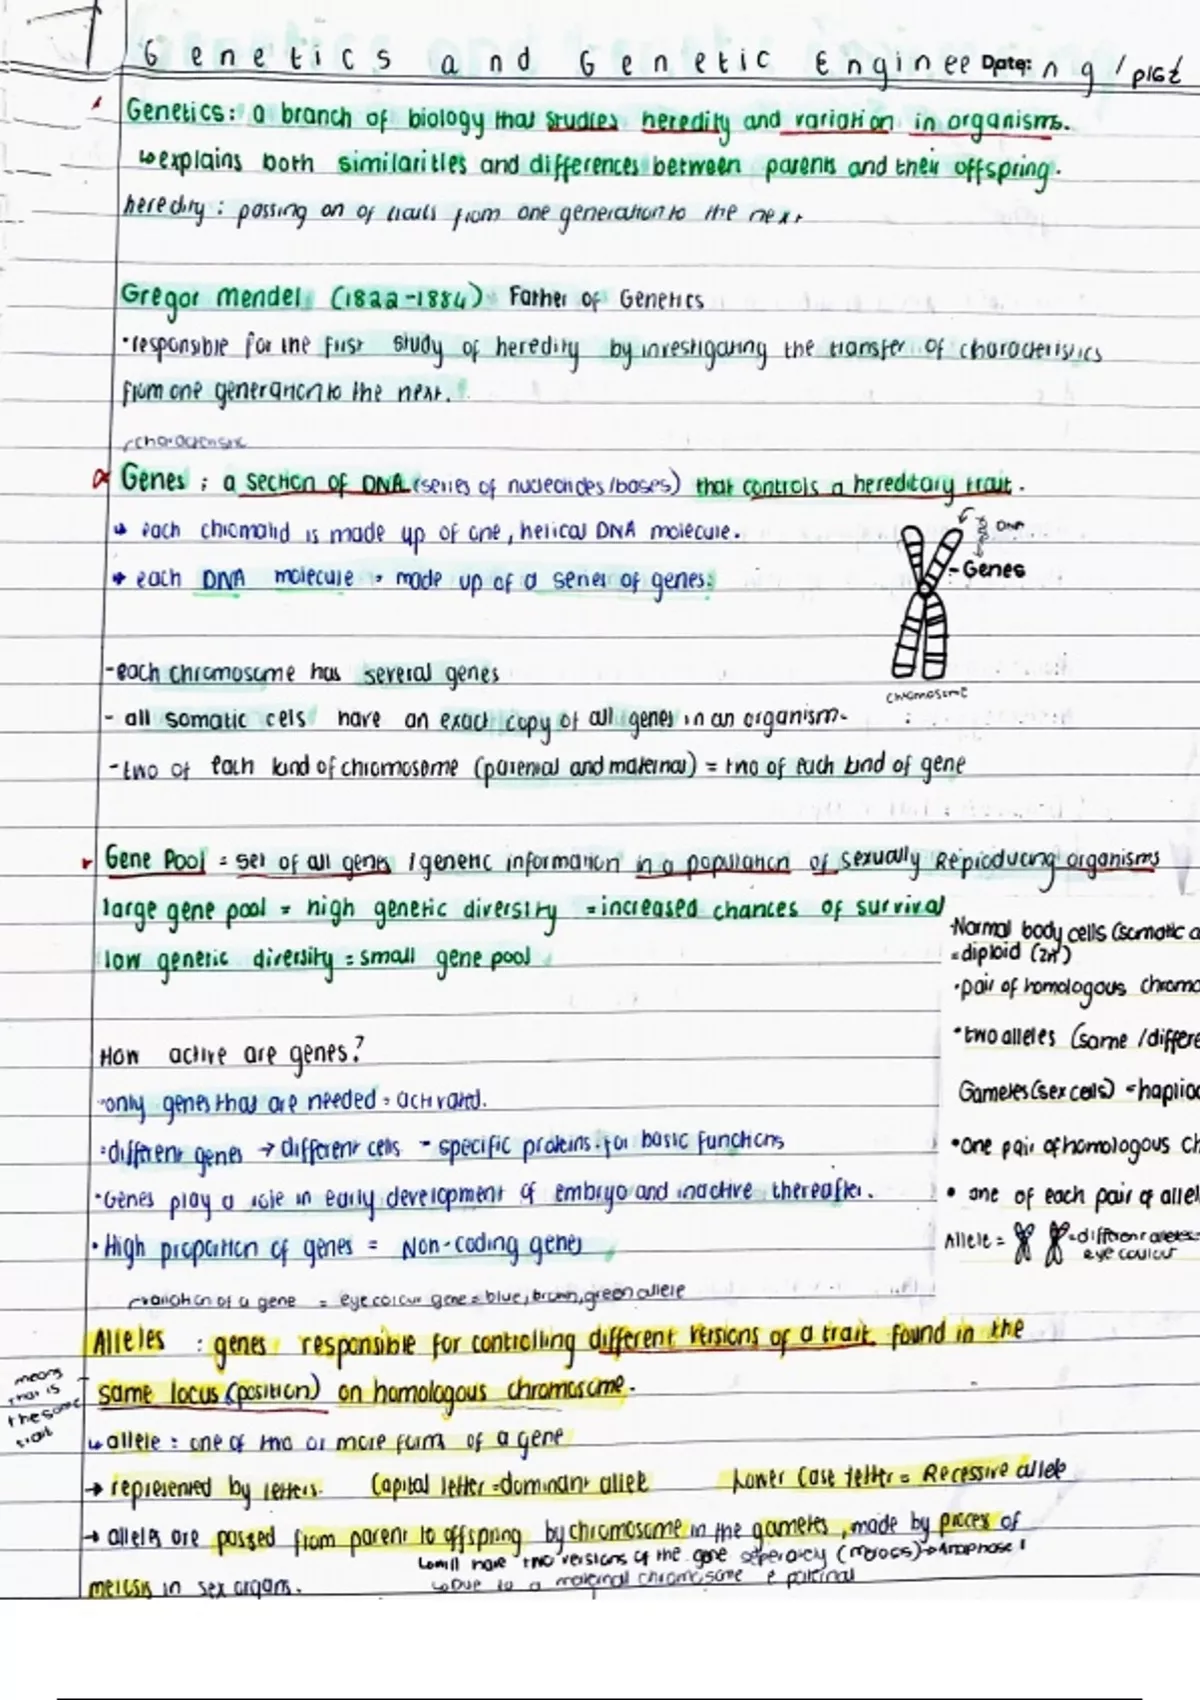 Genetics and Genetic Engineering / plGZ
Date:
Genetics: a branch of biology that studies heredity and variation in organisms.
↳explains both similarities and differences between parents and their offspring.
heredity: passing on of traits from one generation to the next
Gregor Mendel (1822-1884) Father of Genetics
•responsible for the first study of heredity by investigating the transfer of characteristics
from one generation to the next.
characteristic
Genes: a section of DNA (series of nucleotides/bases) that controls a hereditary trait.
↳ each chromatid is made up of one, helical DNA molecule.
→ each DNA molecule = made up of a series of genes.
DNA
-Genes
chromosome
-each chromosome has several genes
- all somatic cels have an exact copy of all genes in an organism.
-two of each kind of chromosome (paternal and maternal) = two of each kind of gene
Gene Pool = set of all genes / genetic information in a population of sexually Reproducing organisms
large gene pool = high genetic diversity = increased chances of survival
low genetic diversity = small gene pool
Normal body cells (somatic
=diploid (2n)
•pair of homologous chromo
•two alleles (same / differe
Gametes (sex cells) = haploi
•one pair of homologous ch
• one of each pair of allel
Allele = =different alleles=
eye colour
How active are genes?
•only genes that are needed = activated.
•different genes → different cells - specific proteins for basic functions
•Genes play a role in early development of embryo and inactive thereafter.
•High proportion of genes = Non-coding genes
variation of a gene = eye colour gene = blue, brown, green allele
Alleles : genes responsible for controlling different versions of a trait found in the
same locus (position) on homologous chromosome.
means
that is
the same
trait
↳allele: one of two or more form of a gene
→ represented by letters. Capital letter = dominant allele Lower Case letter = Recessive allele
→ alleles are passed from parent to offspring by chromosome in the gametes, made by process of
↳will have two versions of the gene seperately (meiosis)→Anaphase 1
meiosis in sex organs. ↳Due to a maternal chromosome &